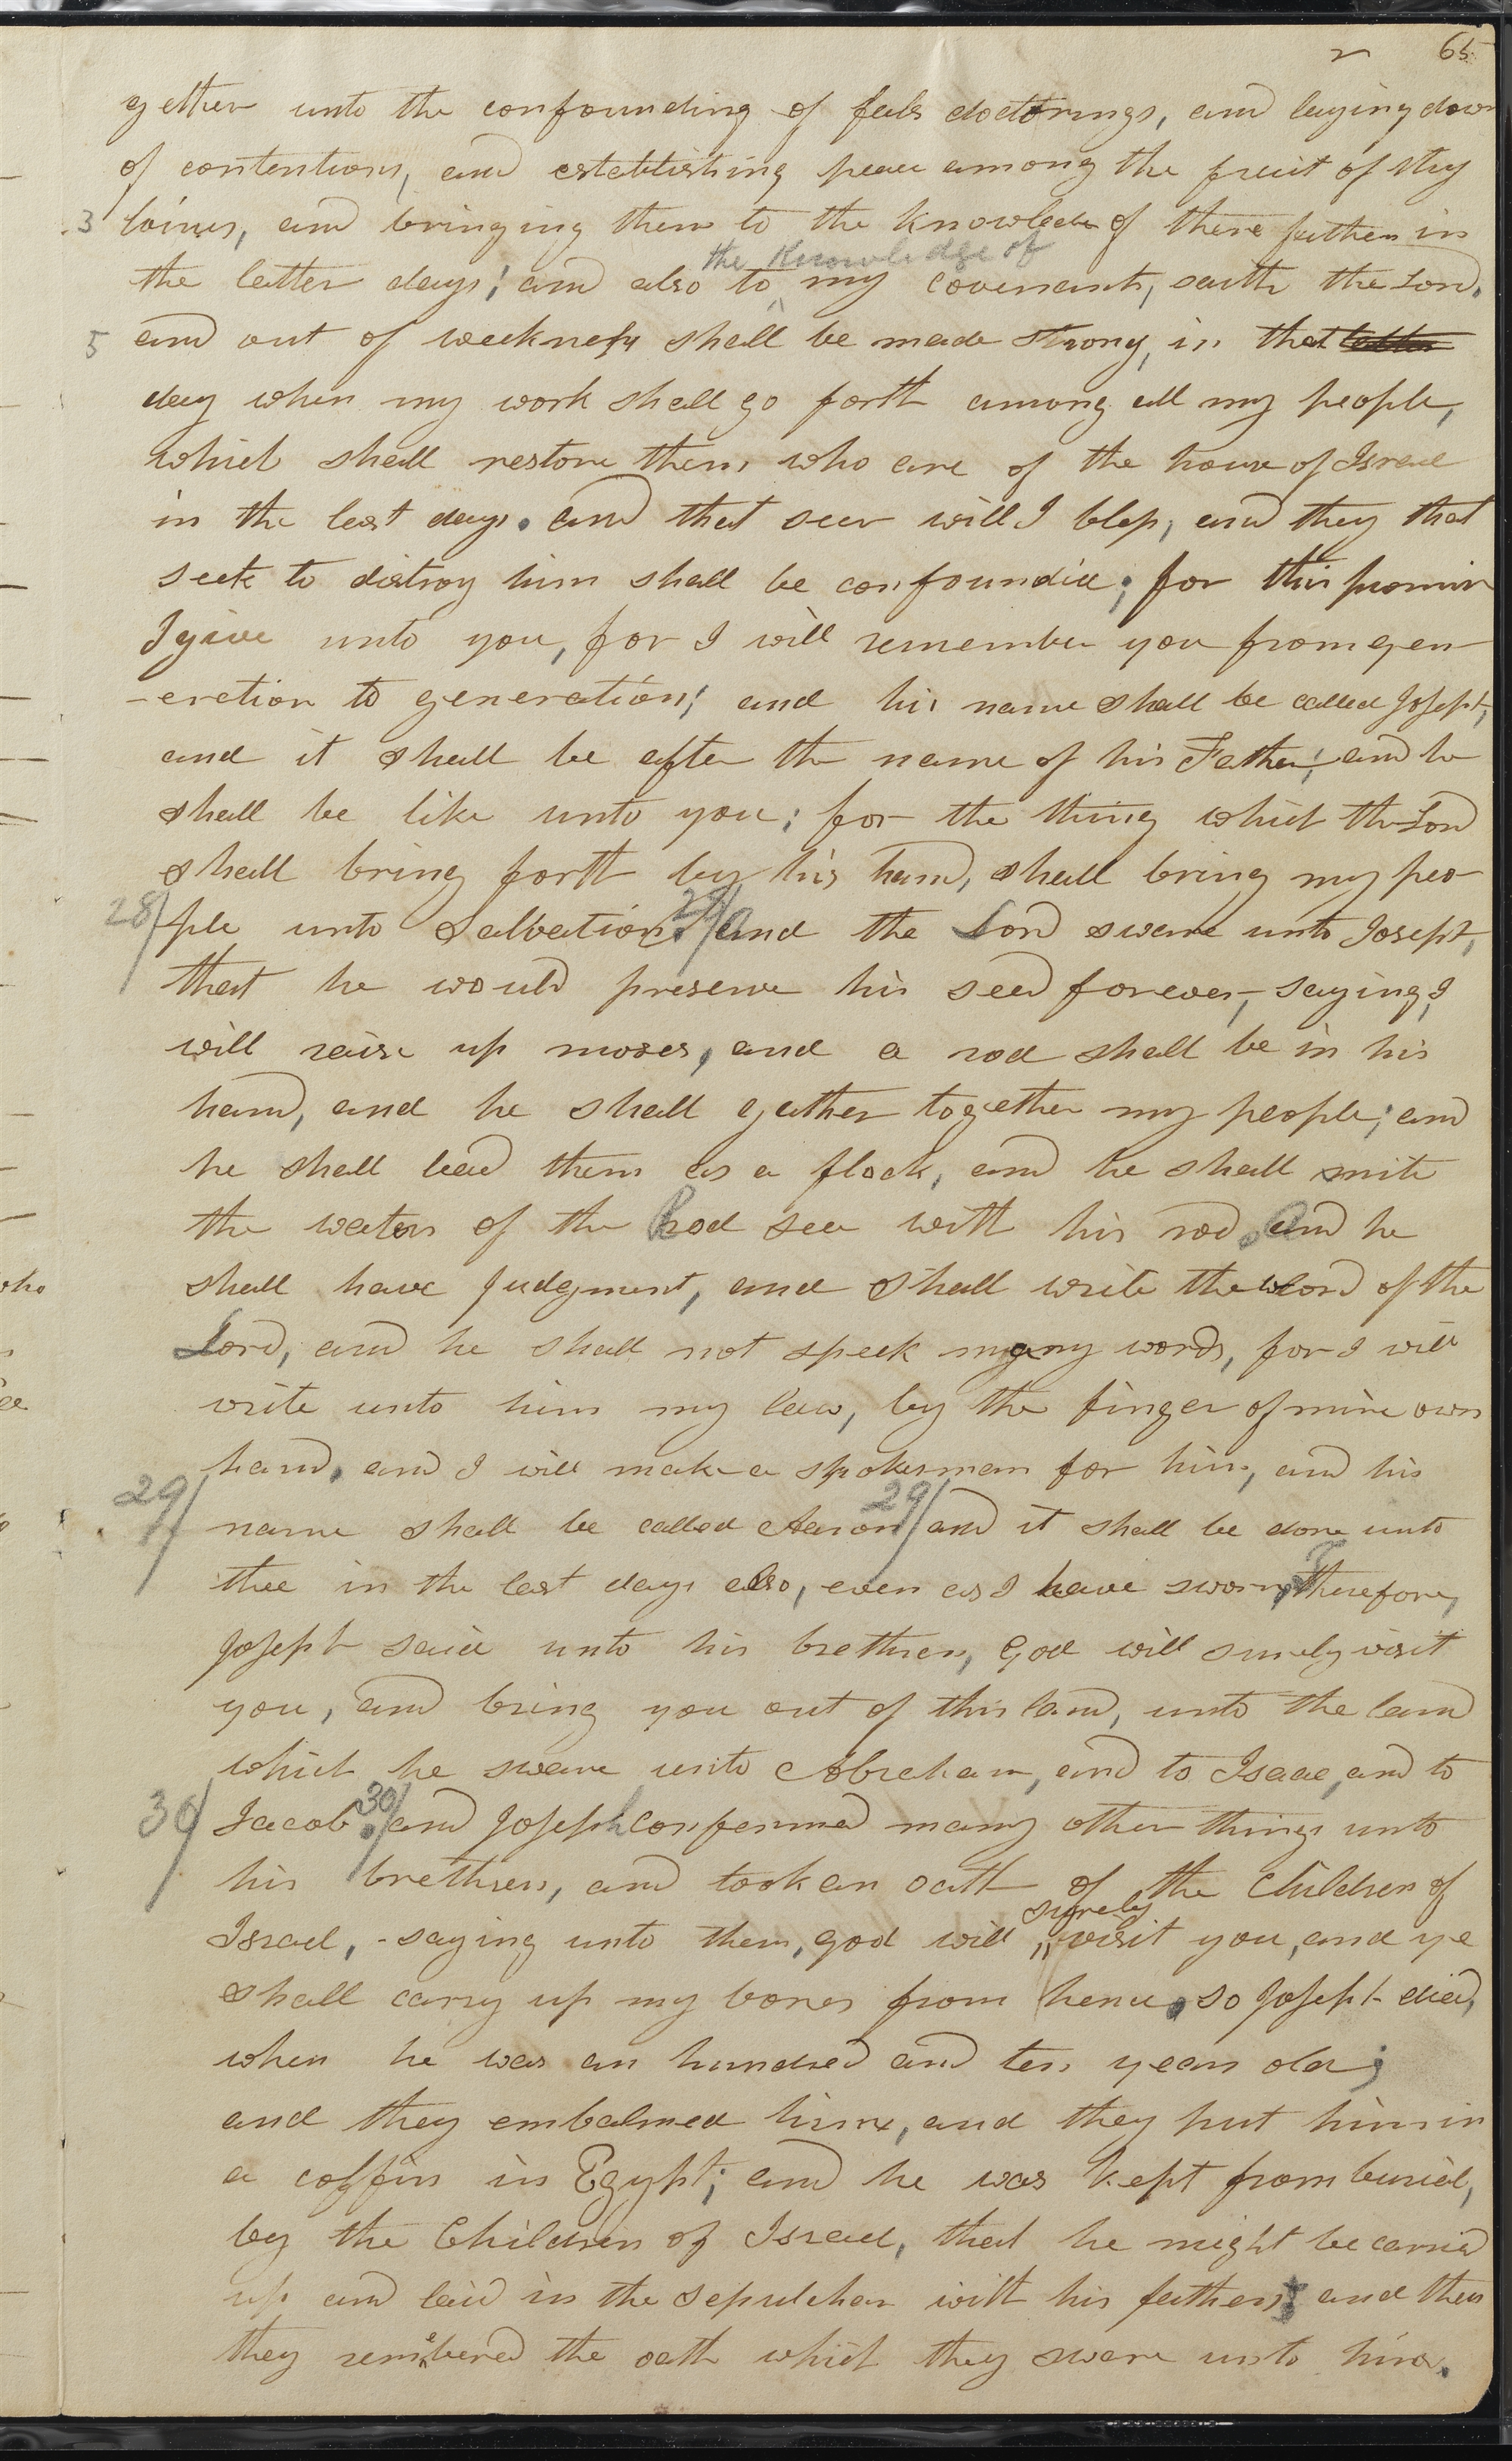 65
gether unto the confounding of fals doctorings, and laying down
of contentions, and establishing peace among the fruit of thy
3 loines, and bringing them to the knowledge of there fathers in
the knowledge of
the latter days; and also to my covenants, saith the Lord,
5 and out of weekness shall be made strong, in that latter
day when my work shall go forth among all my people,
which shall restore them, who are of the house of Israel
in the last days. and that seer will I bless, and they that
seek to distroy him shall be confounded; for this promis
I give unto you, for I will remember you from gen-
-eration to generation; and his name shall be called Joseph,
and it shall be after the name of his Father; and he
shall be like unto you; for the thing which the Lord
shall bring forth by his hand, shall bring my peo-
28/ ple unto salvation. 28/ And the Lord sware unto Joseph,
that he would preserve his seed forever, saying, I
will raise up moses, and a rod shall be in his
hand, and he shall gather together my people; and
he shall lead them as a flock, and he shall smite
the waters of the Red sea with his rod. And he
shall have judgment, and shall write the word of the
Lord, and he shall not speek many words, for I will
write unto him my law, by the finger of mine own
hand. and I will make a spokesman for him, and his
29/ name shall be called Aaron 29/ and it shall be done unto
thee in the last days also, even as I have sworn. Therefore,
Joseph said unto his brethren, God will surely visit
you, and bring you out of this land, unto the land
which he sware unto Abraham, and to Isaac, and to
30/ Jacob. 30/ and Joseph confermed many other things unto
his brethren, and took an oath of the Children of
surely
Israel, - saying unto them, god will visit you, and ye
shall carry up my bones from hence. so Joseph died,
when he was an hundred and ten years old;
and they embalmed him, and they put him in
a coffin in Egypt; and he was kept from burial,
by the Children of Israel, that he might be carried
up and laid in the sepulcher with his fathers; and thus
they remebered the oath which they sware unto him.